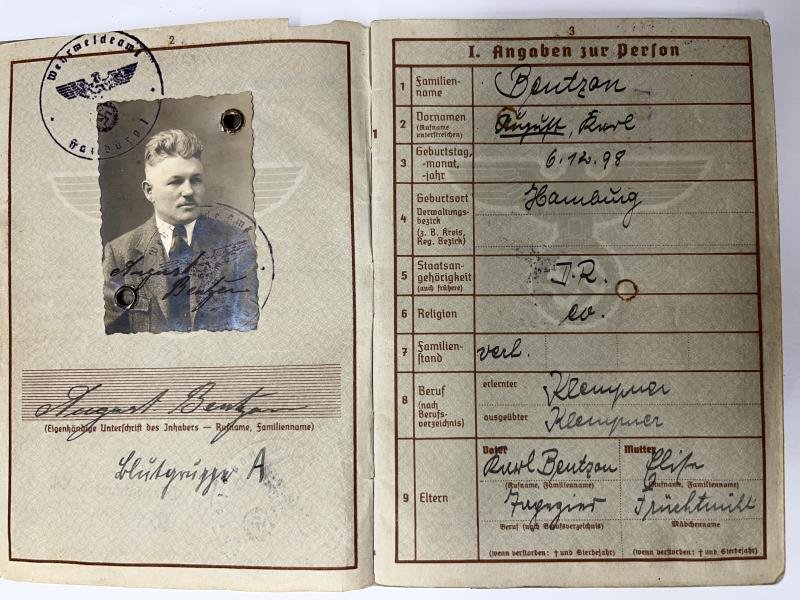 2
Wehrmeldeamt
Hamburg 1
August
Bentzon
August Bentzon
(Eigenhändige Unterschrift des Inhabers — Rufname, Familienname)
Blutgruppe A
3
I. Angaben zur Person
1 Familien-
name
Bentzon
2 Vornamen
(Rufname
unterstreichen)
August, Karl
3 Geburtstag,
-monat,
-jahr
6.12.98
4 Geburtsort
Verwaltungs-
bezirk
(z. B. Kreis,
Reg. Bezirk)
Hamburg
5 Staatsan-
gehörigkeit
(auch frühere)
D.R.
6 Religion
ev.
7 Familien-
stand
verh.
8 Beruf
(nach
Berufs-
verzeichnis)
erlernter Klempner
ausgeübter Klempner
9 Eltern
Vater
Karl Bentzon
(Rufname, Familienname)
Tapezier
Beruf (nach Berufsverzeichnis)
(wenn verstorben: † und Sterbejahr)
Mutter
Elise
(Rufname, Familienname)
Mädchenname
(wenn verstorben: † und Sterbejahr)